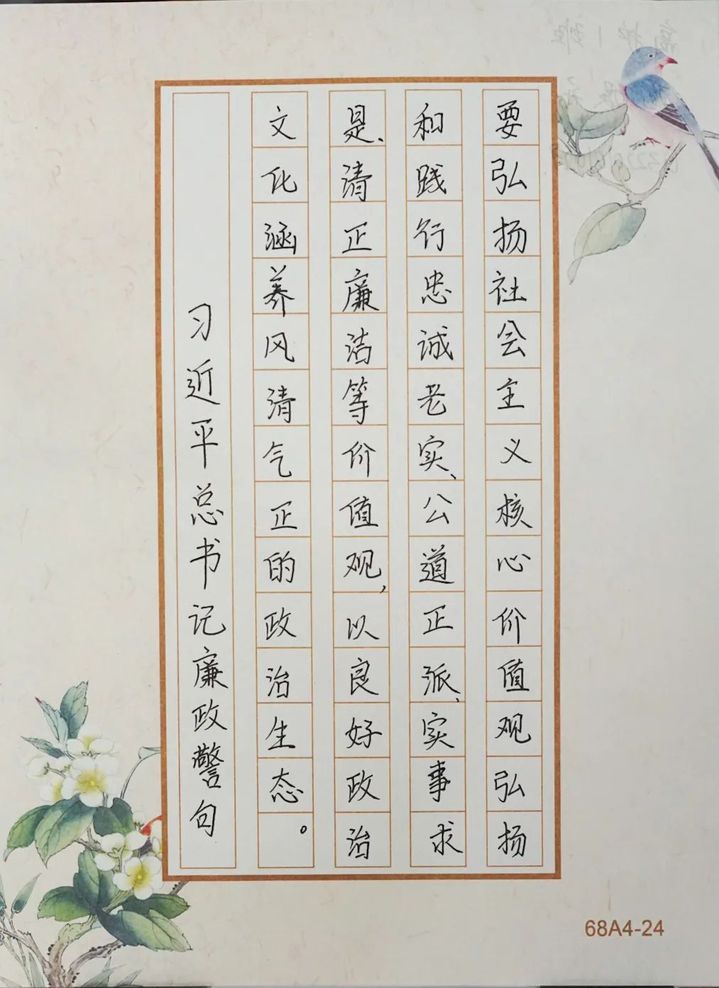 要弘扬社会主义核心价值观弘扬
和践行忠诚老实、公道正派、实事求
是、清正廉洁等价值观，以良好政治
文化涵养风清气正的政治生态。
习近平总书记廉政警句
68A4-24